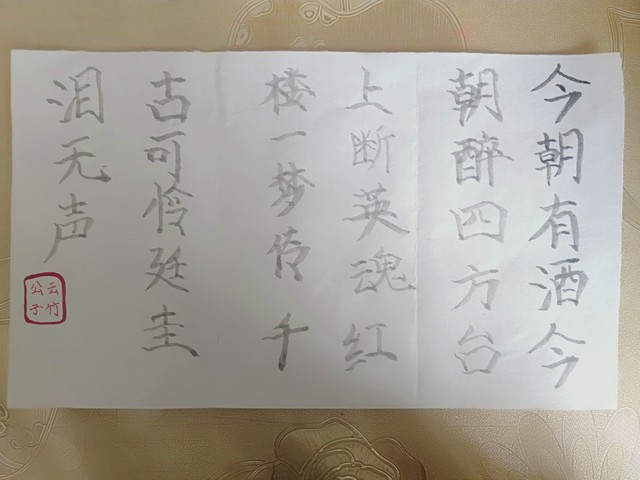 今朝有酒今
朝醉四方台
上断英魂红
楼一梦传千
古可怜廷圭
泪无声
云竹
公子